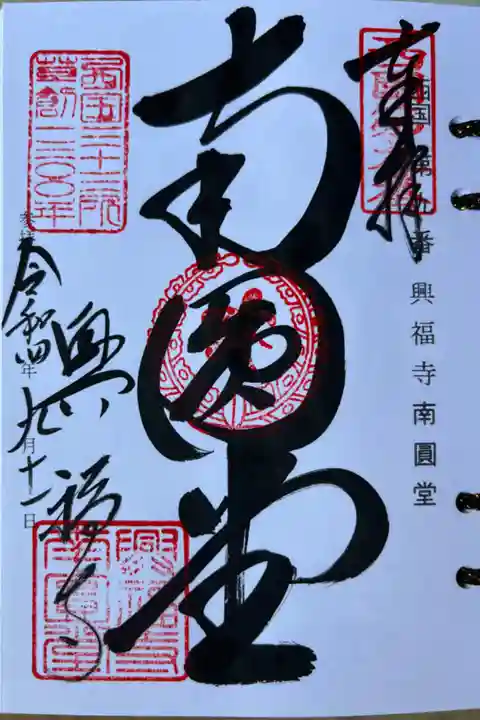 奉拝
西国第九番 興福寺南圓堂
南圓堂
西国三十三所
草創一三〇〇年
興福寺
令和四年九月十一日